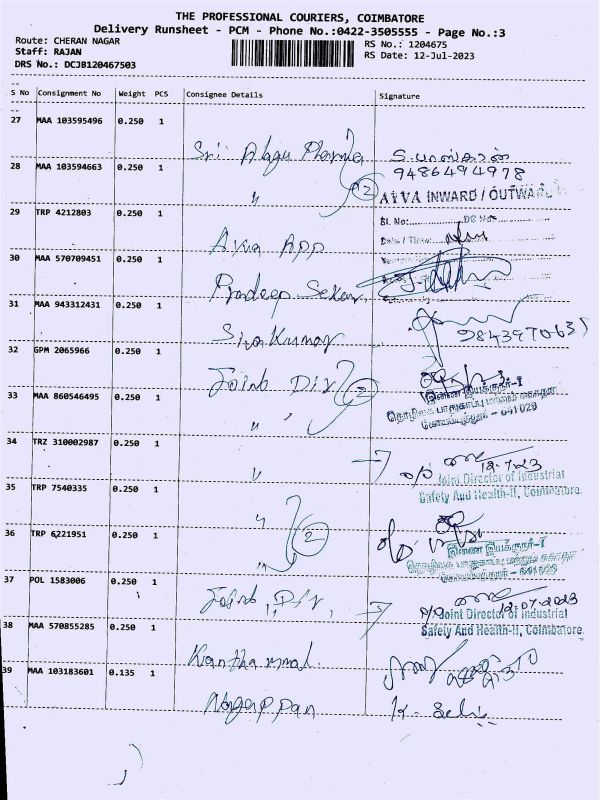 THE PROFESSIONAL COURIERS, COIMBATORE
Delivery Runsheet - PCM - Phone No.:0422-3505555 - Page No.:3
Route: CHERAN NAGAR
Staff: RAJAN
DRS No.: DCJB120467503
RS No.: 1204675
RS Date: 12-Jul-2023
S No Consignment No Weight PCS Consignee Details Signature
27 MAA 103595496 0.250 1
Sri Alagu Pharma
S. பாஸ்கரன்
9486494978
28 MAA 103594663 0.250 1
" 2
AVVA INWARD / OUTWARD
29 TRP 4212803 0.250 1
Sl. No: DC No
Date / Time:
Avva App
30 MAA 570709451 0.250 1
Pradeep Sekar
31 MAA 943312431 0.250 1
Siva Kumar
32 GPM 2065966 0.250 1
Joint Dir 2
இணை இயக்குநர்-I
33 MAA 860546495 0.250 1
தொழிலக பாதுகாப்பு மற்றும் சுகாதார
கோயம்புத்தூர் - 641029
"
34 TRZ 310002987 0.250 1
"
Joint Director of Industrial
Safety And Health-II, Coimbatore.
35 TRP 7540335 0.250 1
" 2
36 TRP 6221951 0.250 1
இணை இயக்குநர்-I
தொழிலக பாதுகாப்பு மற்றும் சுகாதார
கோயம்புத்தூர் - 641029
37 POL 1583006 0.250 1
Joint Dir
12.07.2023
Joint Director of Industrial
Safety And Health-II, Coimbatore.
38 MAA 570855285 0.250 1
Kanthammal
39 MAA 103183601 0.135 1
Nagappan
K. Selvi